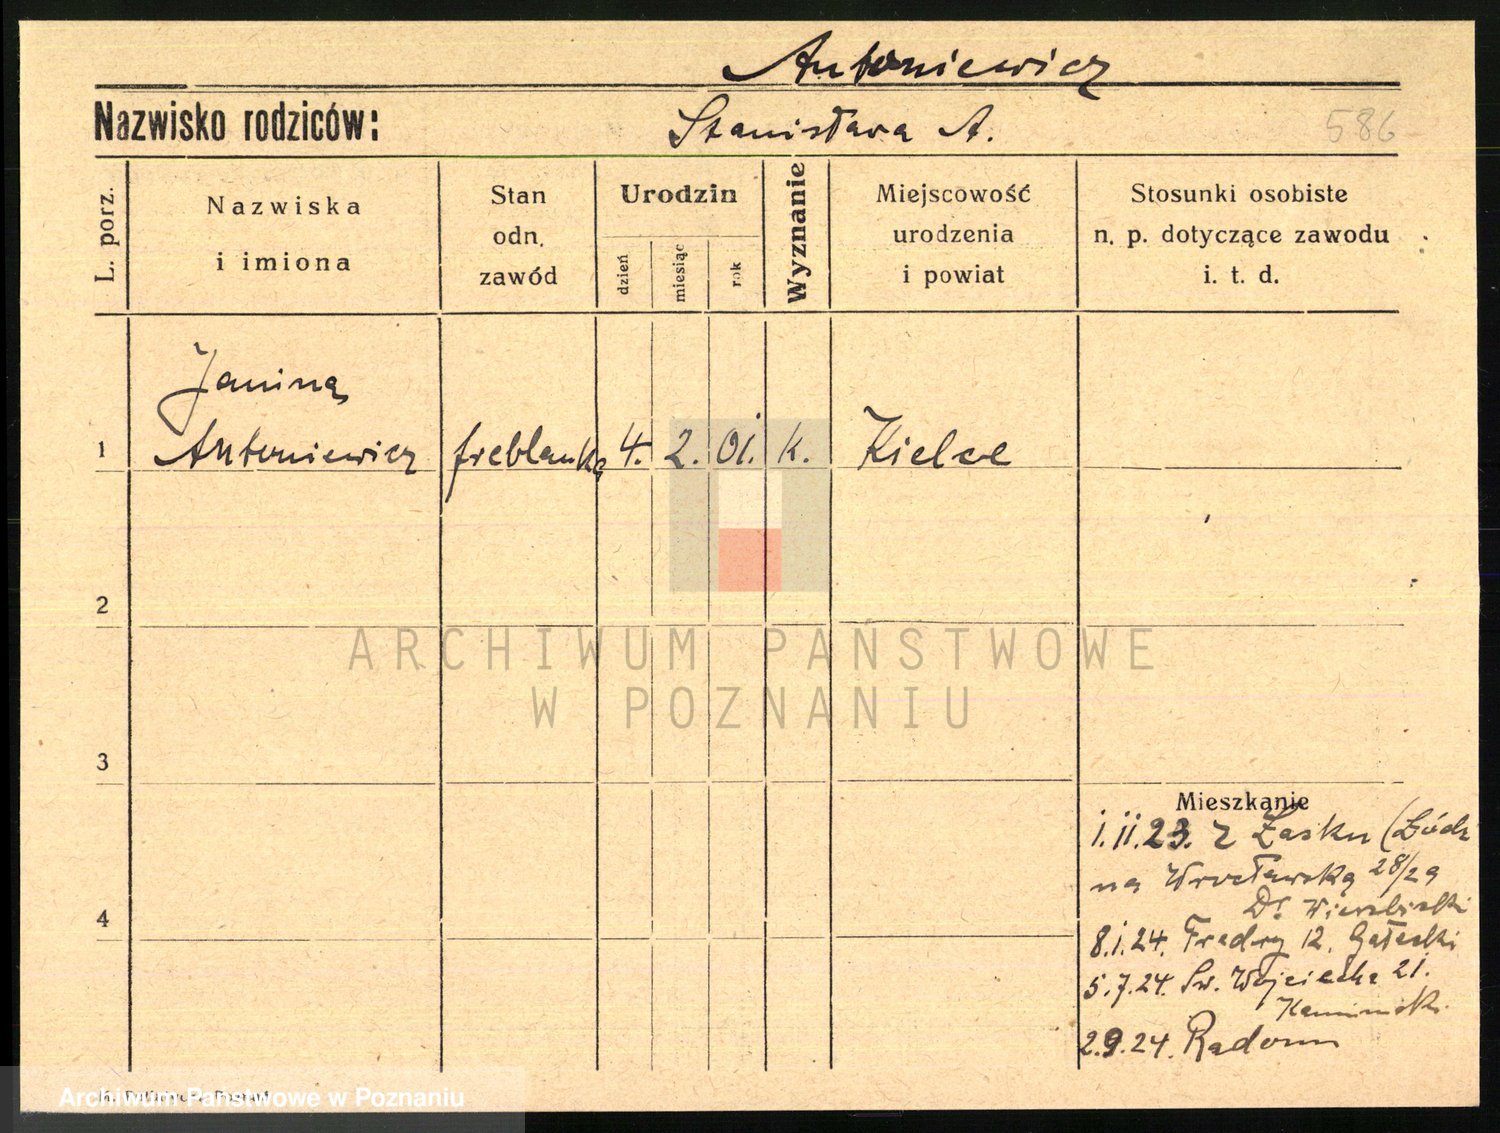 Antoniewicz
Nazwisko rodziców:
Stanisława A.
586
L. porz.
Nazwiska
i imiona
Stan
odn.
zawód
Urodzin
dzień
miesiąc
rok
Wyznanie
Miejscowość
urodzenia
i powiat
Stosunki osobiste
n. p. dotyczące zawodu
i. t. d.
Janina
1 Antoniewicz freblanka 4. 2. 01. k. Kielce
2
ARCHIWUM PAŃSTWOWE
W POZNANIU
3
Mieszkanie
1.11.23. z Łasku (Łódz
na Wrocławską 28/29
Dr Wierzbicki
4
8.1.24. Fredry 12. Gałecki
5.7.24. Św. Wojciecha 21.
Kamiński.
2.9.24. Radom
Archiwum Państwowe w Poznaniu